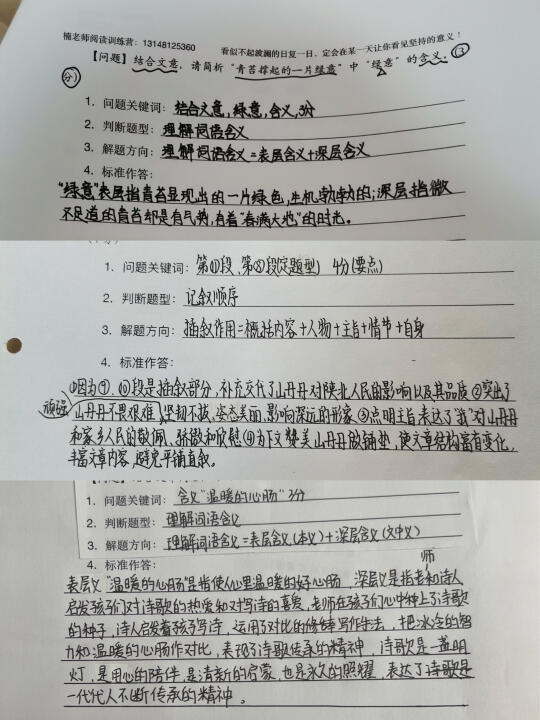 楠老师阅读训练营：13148125360
看似不起波澜的日复一日、定会在某一天让你看见坚持的意义！
【问题】结合文意，请简析“青苔撑起的一片绿意”中“绿意”的含义。（3
分）
1. 问题关键词：结合文意，绿意，含义，3分
2. 判断题型：理解词语含义
3. 解题方向：理解词语含义=表层含义+深层含义
4. 标准作答：
“绿意”表层指青苔显现出的一片绿色，生机勃勃的；深层指微
不足道的青苔却是有气势，有着“春满大地”的时光。
1. 问题关键词：第⑪段，第⑨段定题型） 4分（要点）
2. 判断题型：记叙顺序
3. 解题方向：插叙作用=概括内容+人物+主旨+情节+自身
4. 标准作答：
①因为⑨、⑩段是插叙部分，补充交代了山丹丹对陕北人民的影响以及其品质 ②突出了
顽强
山丹丹不畏艰难、坚韧不拔、姿态美丽、影响深远的形象 ③点明主旨表达了“我”对山丹丹
和家乡人民的敬佩、骄傲和欣慰 ④为下文赞美山丹丹做铺垫，使文章结构富有变化，
丰富文章内容，避免平铺直叙。
1. 问题关键词：含义“温暖的心肠”3分
2. 判断题型：理解词语含义
3. 解题方向：理解词语含义=表层含义(本义)+深层含义(文中义)
4. 标准作答：
师
表层义“温暖的心肠”是指使人心里温暖的好心肠 深层义是指老和诗人
启发孩子们对诗歌的热爱和对写诗的喜爱，老师在孩子们心中种上了诗歌
的种子，诗人启发着孩子写诗，运用了对比的修辞写作手法，把冰冷的智
力和温暖的心肠作对比，表现了诗歌传承的精神，诗歌是一盏明
灯，是用心的陪伴，是清新的启蒙，也是永久的照耀，表达了诗歌是
一代代人不断传承的精神。